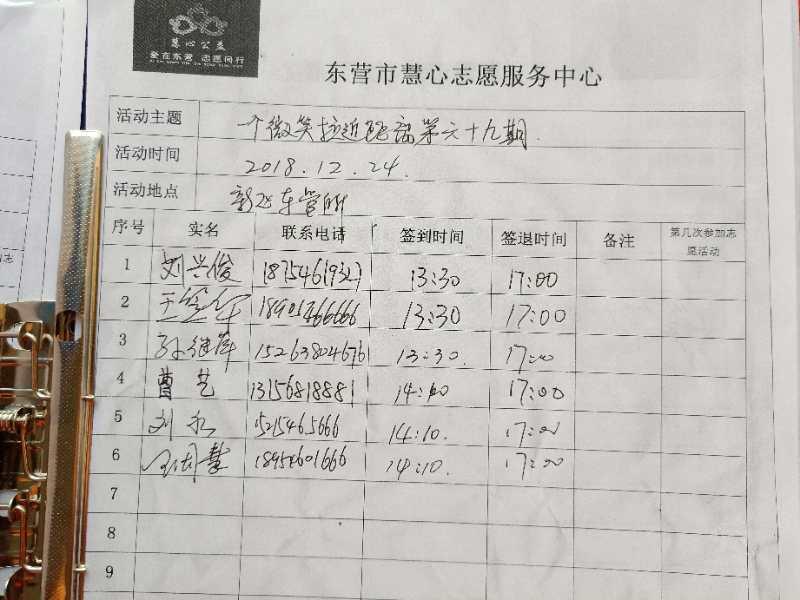 慧心公益
爱在东营 志愿同行
东营市慧心志愿服务中心
活动主题 一个微笑拉近距离第六十九期.
活动时间 2018.12.24.
活动地点 东管所
序号 实名 联系电话 签到时间 签退时间 备注 第几次参加志愿活动
1 刘兴俊 18754619327 13:30 17:00
2 王 13:30 17:00
3 孙继萍 15263804676 13:30. 17:00
4 曹艺 13156818881 17:00
5 刘 15215465666 14:10. 17:00
6 18954601666 14:10. 17:00
7
8
9